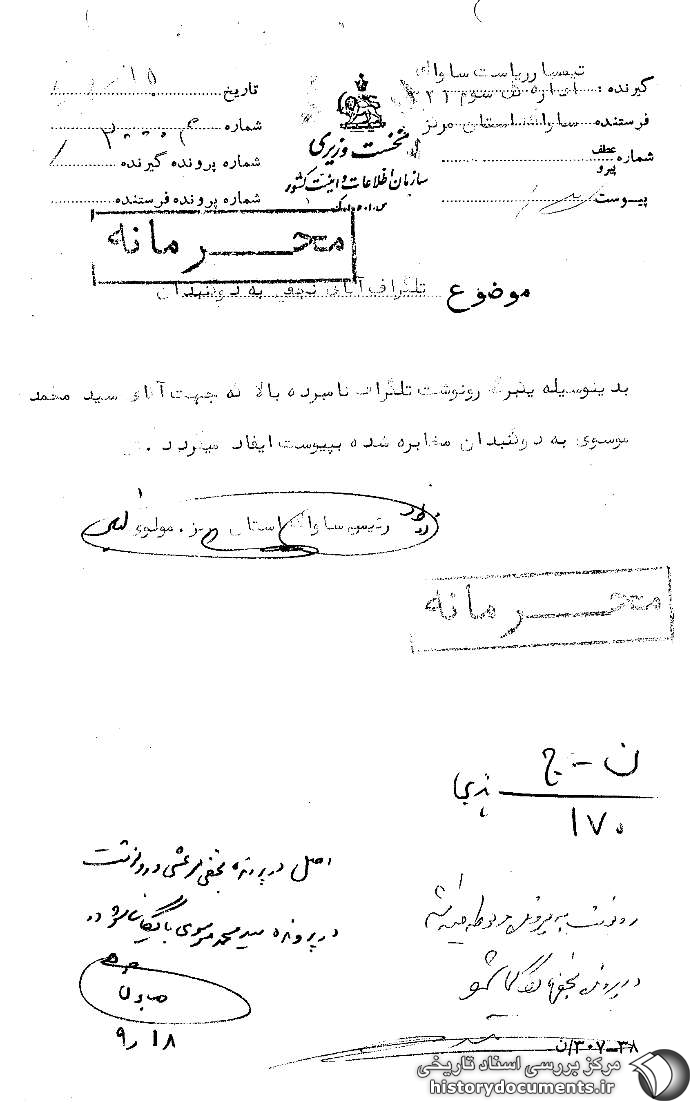 گیرنده : تیمسار ریاست ساواک
اداره کل سوم ۳۲۱
فرستنده ساواک استان مرکز
شماره عطف
پیرو
پیوست
نخست وزیری
سازمان اطلاعات و امنیت کشور
س.ا.و.ا.ک
تاریخ
شماره
شماره پرونده گیرنده
شماره پرونده فرستنده
محرمانه
موضوع تلگراف آقای نجفی به دوگنبدان
بدینوسیله یکبرگ رونوشت تلگراف نامبرده بالا که جهت آقای سید محمد
موسوی به دوگنبدان مخابره شده بپیوست ایفاد میگردد .
رئیس ساواک استان مرکز . مولوی
محرمانه
ن - ج
۱۷۰
اصل در پرونده نجفی مرعشی و رونوشت
در پرونده سید محمد موسوی بایگانی شود
۹/۱۸
۳۰۷-۳۸/ن
مرکز بررسی اسناد تاریخی
historydocuments.ir